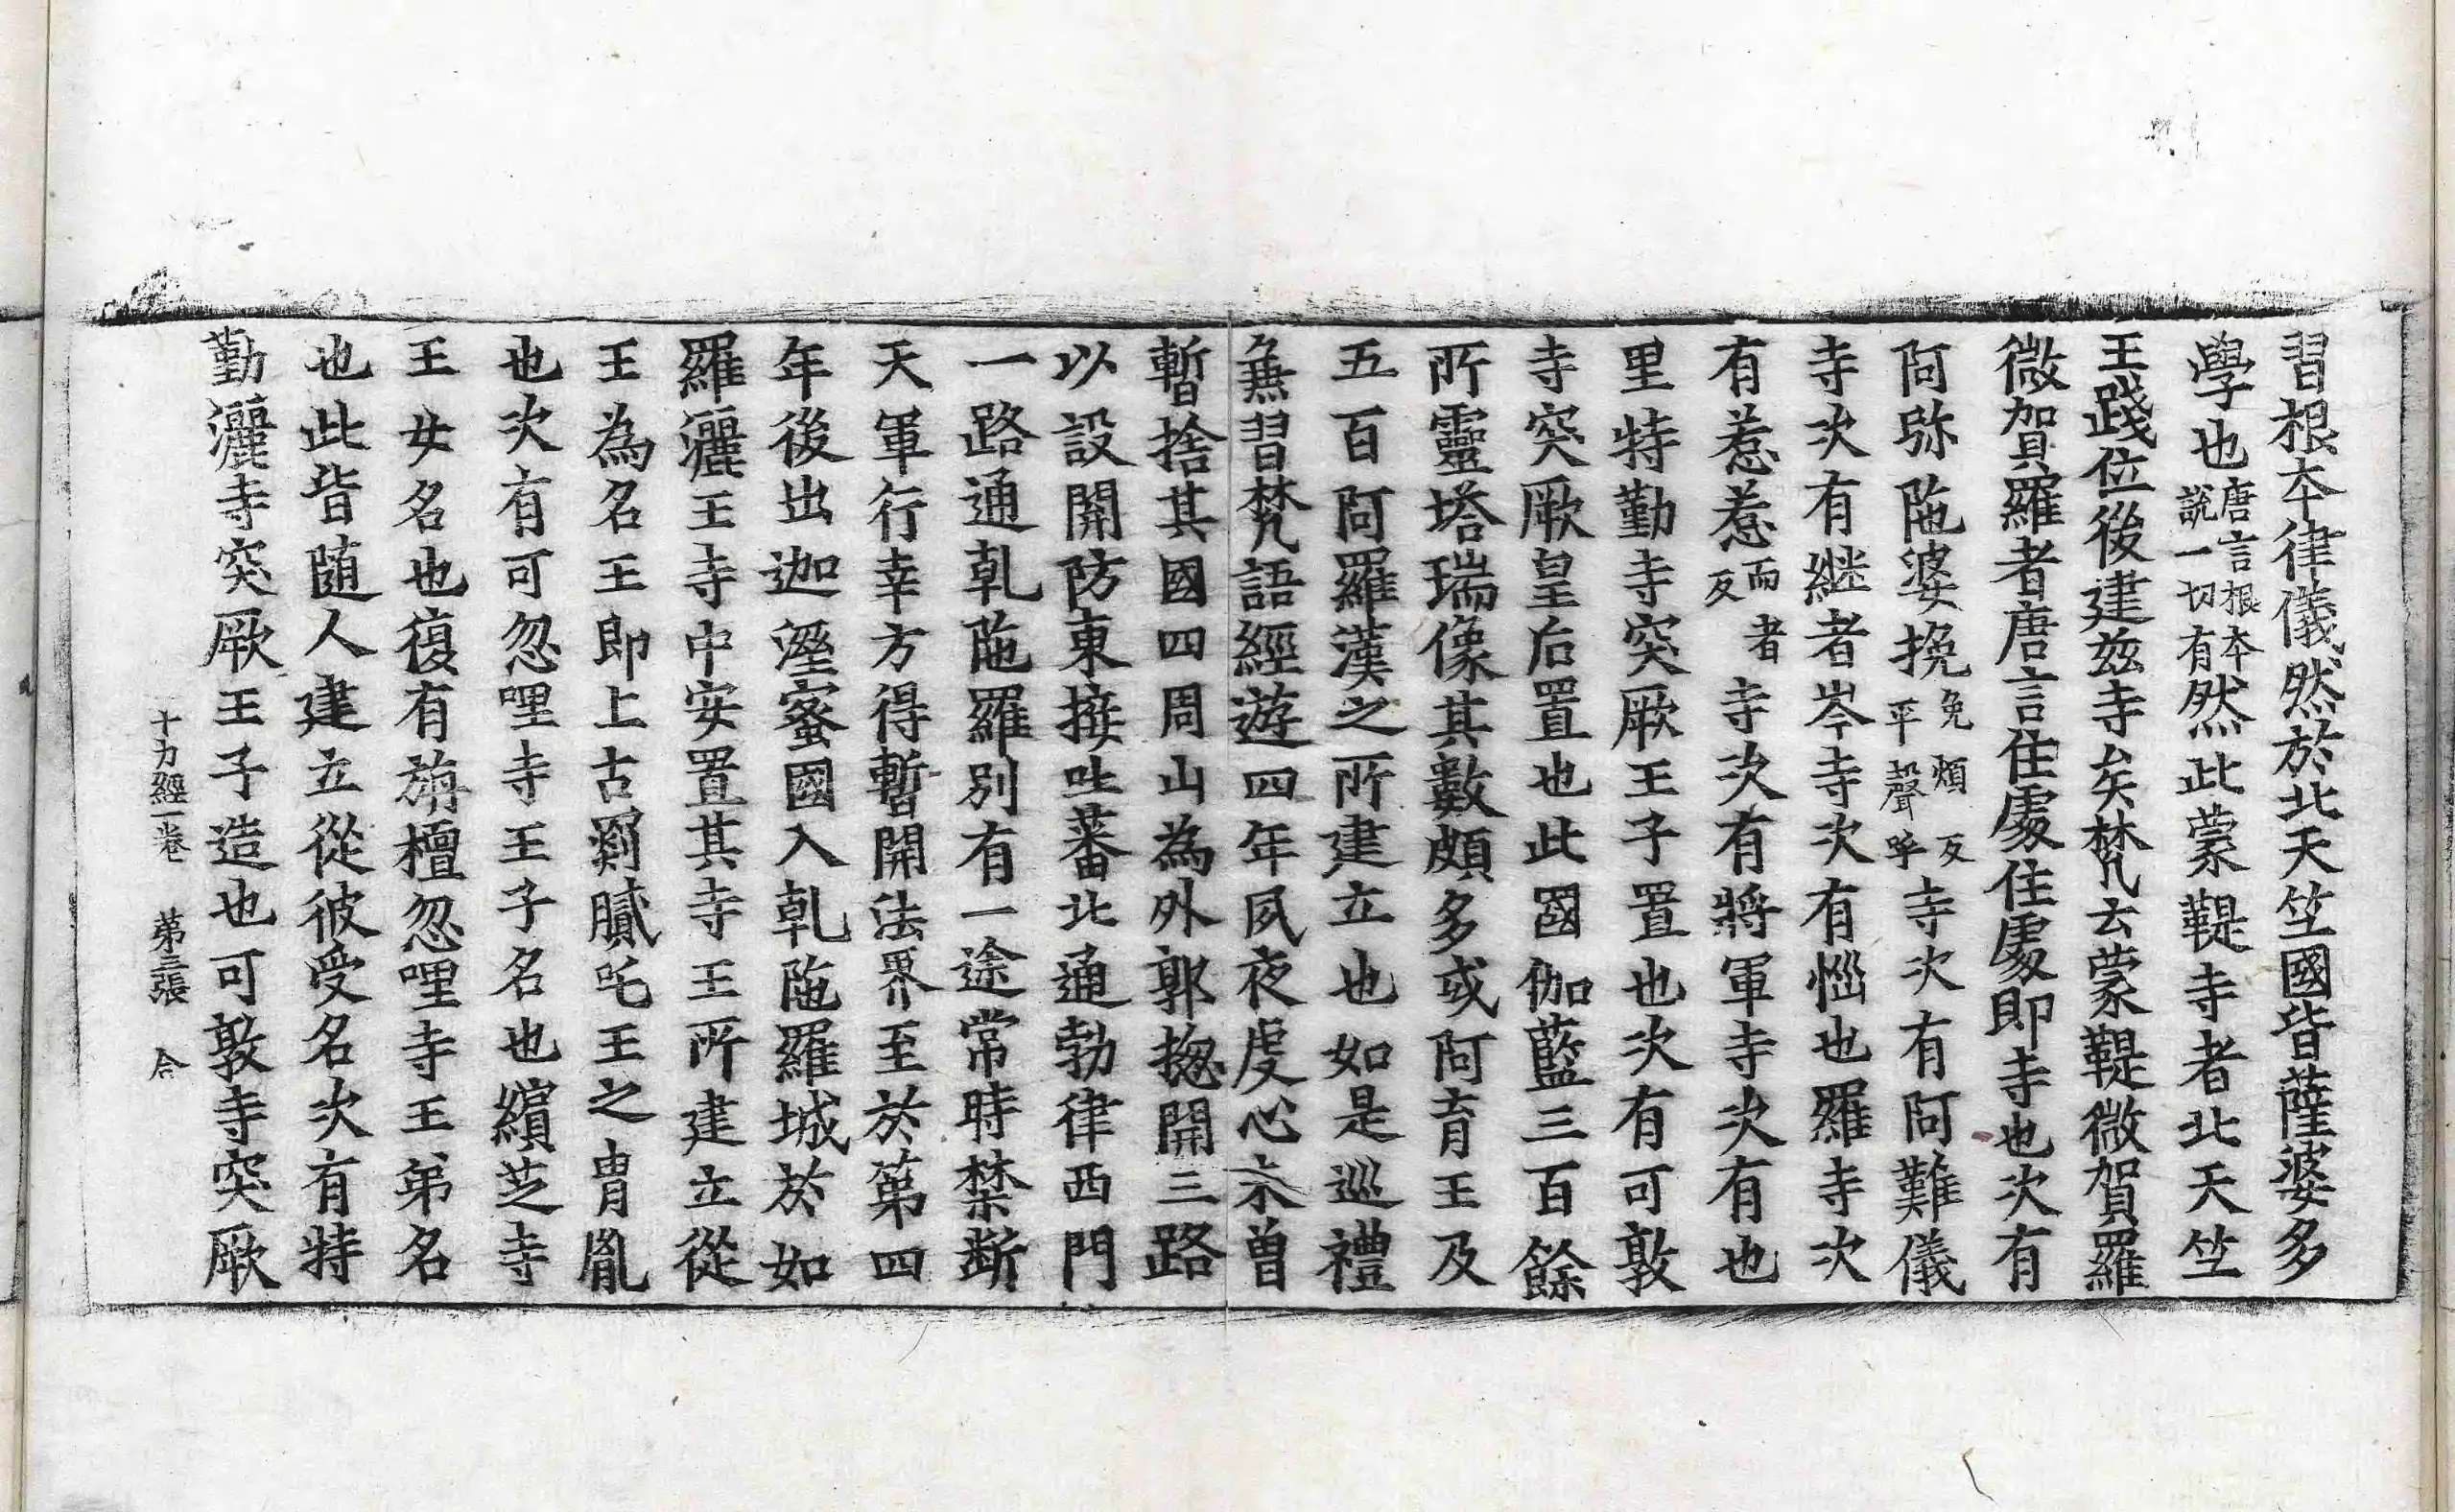 習根本律儀然於北天竺國皆薩婆多
學也唐言根本說一切有然此蒙鞮寺者北天竺
王踐位後建兹寺矣梵云蒙鞮微賀羅
微賀羅者唐言住處住處即寺也次有
阿弥陁婆挽免煩反平聲呼寺次有阿難儀
寺次有継者岑寺次有惱也羅寺次
有惹惹而者反寺次有將軍寺次有也
里特勤寺突厥王子置也次有可敦
寺突厥皇后置也此國伽藍三百餘
所靈塔瑞像其數頗多或阿育王及
五百阿羅漢之所建立也如是巡禮
兼習梵語經遊四年夙夜虔心未曾
暫捨其國四周山為外郭揔開三路
以設開防東接吐蕃北通勃律西門
一路通乹陁羅別有一途常時禁斷
天軍行幸方得暫開法界至於第四
年後出迦溼蜜國入乹陁羅城於如
羅灑王寺中安置其寺王所建立從
王為名王即上古罽膩吒王之胄胤
也次有可忽哩寺王子名也繽芝寺
王女名也復有旃檀忽哩寺王弟名
也此皆隨人建立從彼受名次有特
勤灑寺突厥王子造也可敦寺突厥
十力經一卷 苐三張 合